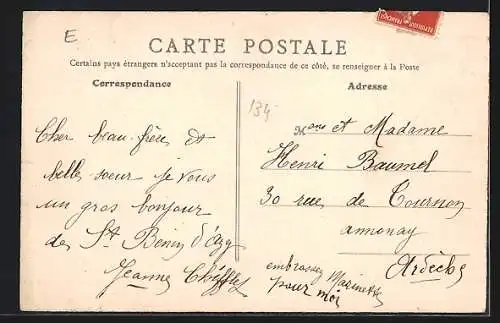 E
CARTE POSTALE
Certains pays étrangers n'acceptant pas la correspondance de ce côté, se renseigner à la Poste
Correspondance
Adresse
134
Cher beau-frère et
belle-soeur je vous
un gros bonjour
de St Benin d'azy
Jeanne
et Madame
Henri Baumel
30 rue de Tournon
annonay
Ardèche
embrassez Marinette
pour moi